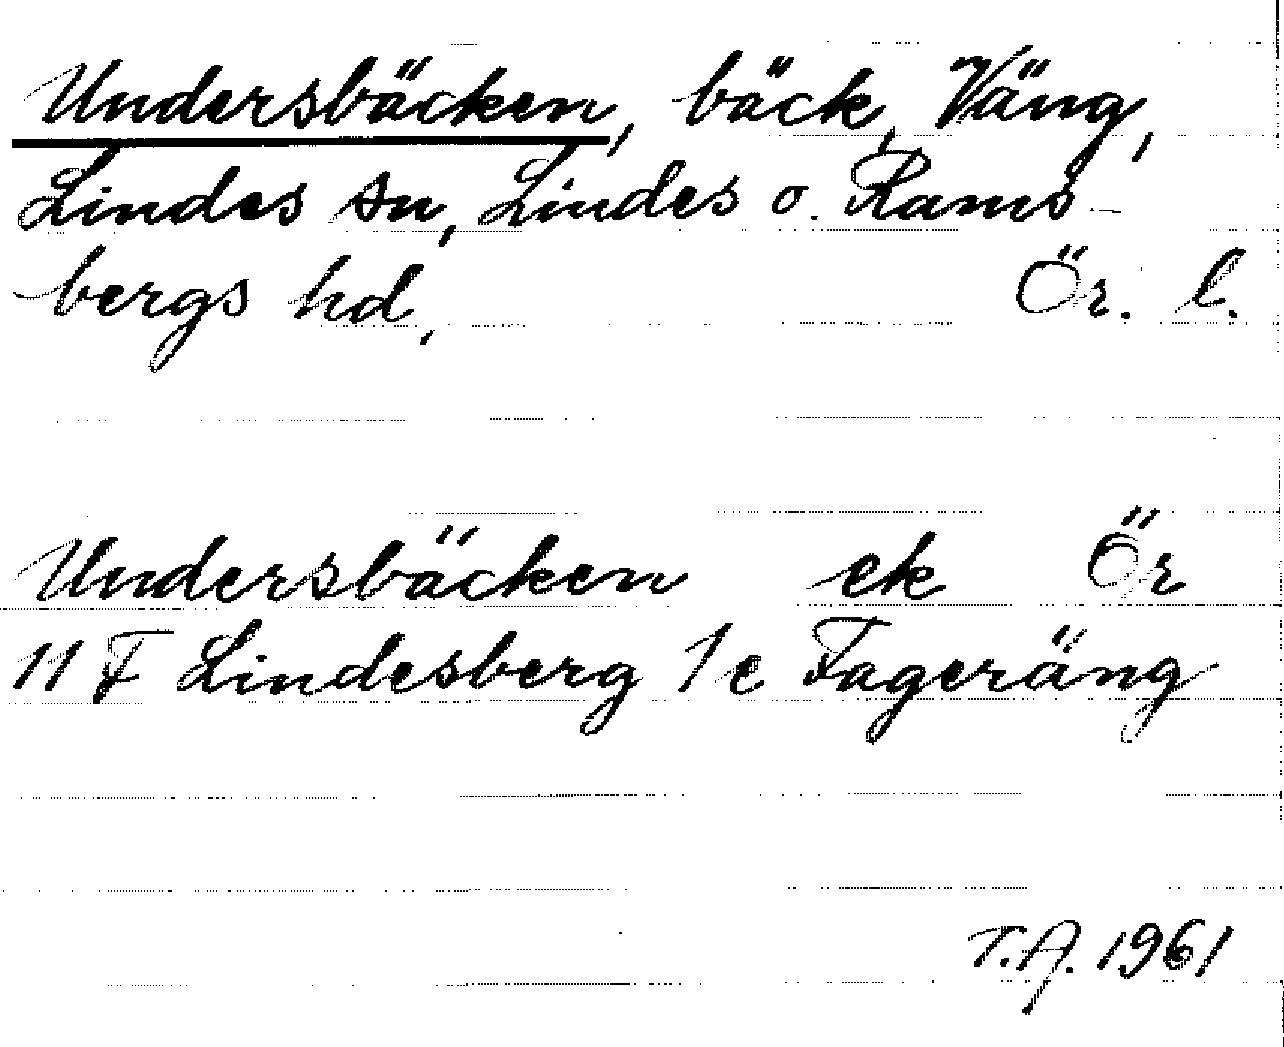 Undersbäcken, bäck, Väng,
Lindes sn, Lindes o. Rams-
bergs hd, Ör. l.
Undersbäcken ek Ör
11 F Lindesberg 1 e Fageräng
T.A. 1961